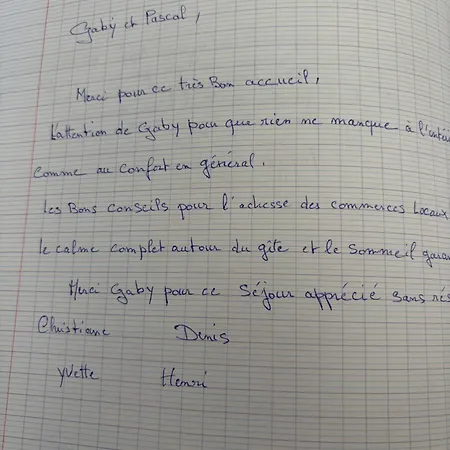 Gaby et Pascal,
Merci pour ce très Bon accueil,
L'attention de Gaby pour que rien ne manque à l'intéri
comme au confort en général.
les Bons conseils pour l'adresse des commerces Locaux
le calme complet autour du gîte et le sommeil garan
Merci Gaby pour ce séjour apprécié sans rés
Christiane Denis
yvette Henri